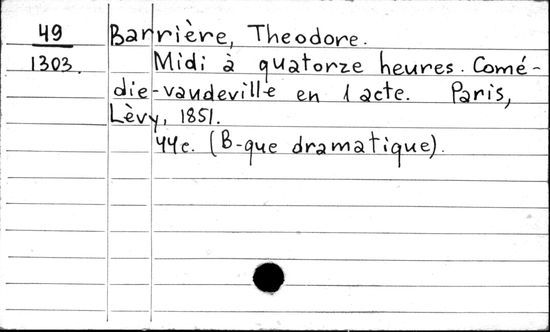 49 Barrière, Theodore.
1303. Midi à quatorze heures. Comé-
die-vaudeville en 1 acte. Paris,
Lèvy, 1851.
44c. (B-que dramatique).